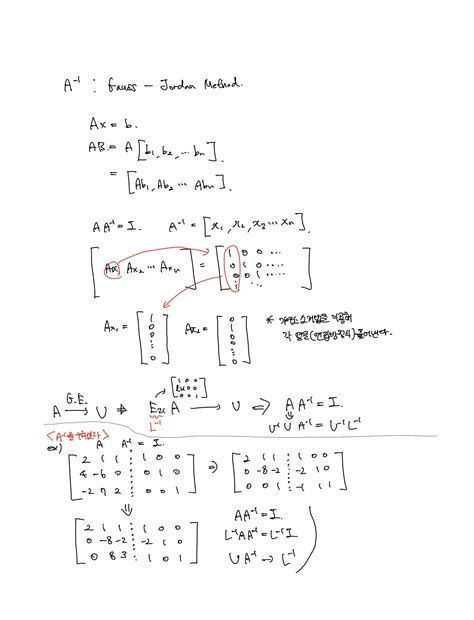 A⁻¹ : Gauss - Jordan Method.
Ax = b.
AB = A [b₁, b₂, ⋯ bₙ].
= [Ab₁, Ab₂ ⋯ Abₙ].
AA⁻¹ = I. A⁻¹ = [x₁, x₂, x₃ ⋯ xₙ].
[Ax₁ Ax₂ ⋯ Axₙ] = [
1 0 0 ⋯
0 1 0 ⋯
0 0 1 ⋯
⋮ ⋮ ⋮
]
Ax₁ = [1 0 0 ⋮ 0] Ax₂ = [0 1 0 0 ⋮ 0] * 가우스 소거법을 이용해
각 열을 (연립방정식) 풀어낸다.
A G.E. → U ⇒ E₂₁ A → U ⇒ A A⁻¹ = I.
L⁻¹ U⁻¹U A⁻¹ = U⁻¹L⁻¹
<A⁻¹를 구해보자>
ex) A A⁻¹ = I
2 1 1 ⋮ 1 0 0 ⇒ 2 1 1 ⋮ 1 0 0
4 -6 0 ⋮ 0 1 0 0 -8 -2 ⋮ -2 1 0
-2 7 2 ⋮ 0 0 1 0 0 1 ⋮ -1 1 1
⇓
2 1 1 ⋮ 1 0 0
0 -8 -2 ⋮ -2 1 0
0 8 3 ⋮ 1 0 1
AA⁻¹ = I.
L⁻¹AA⁻¹ = L⁻¹I.
UA⁻¹ → L⁻¹